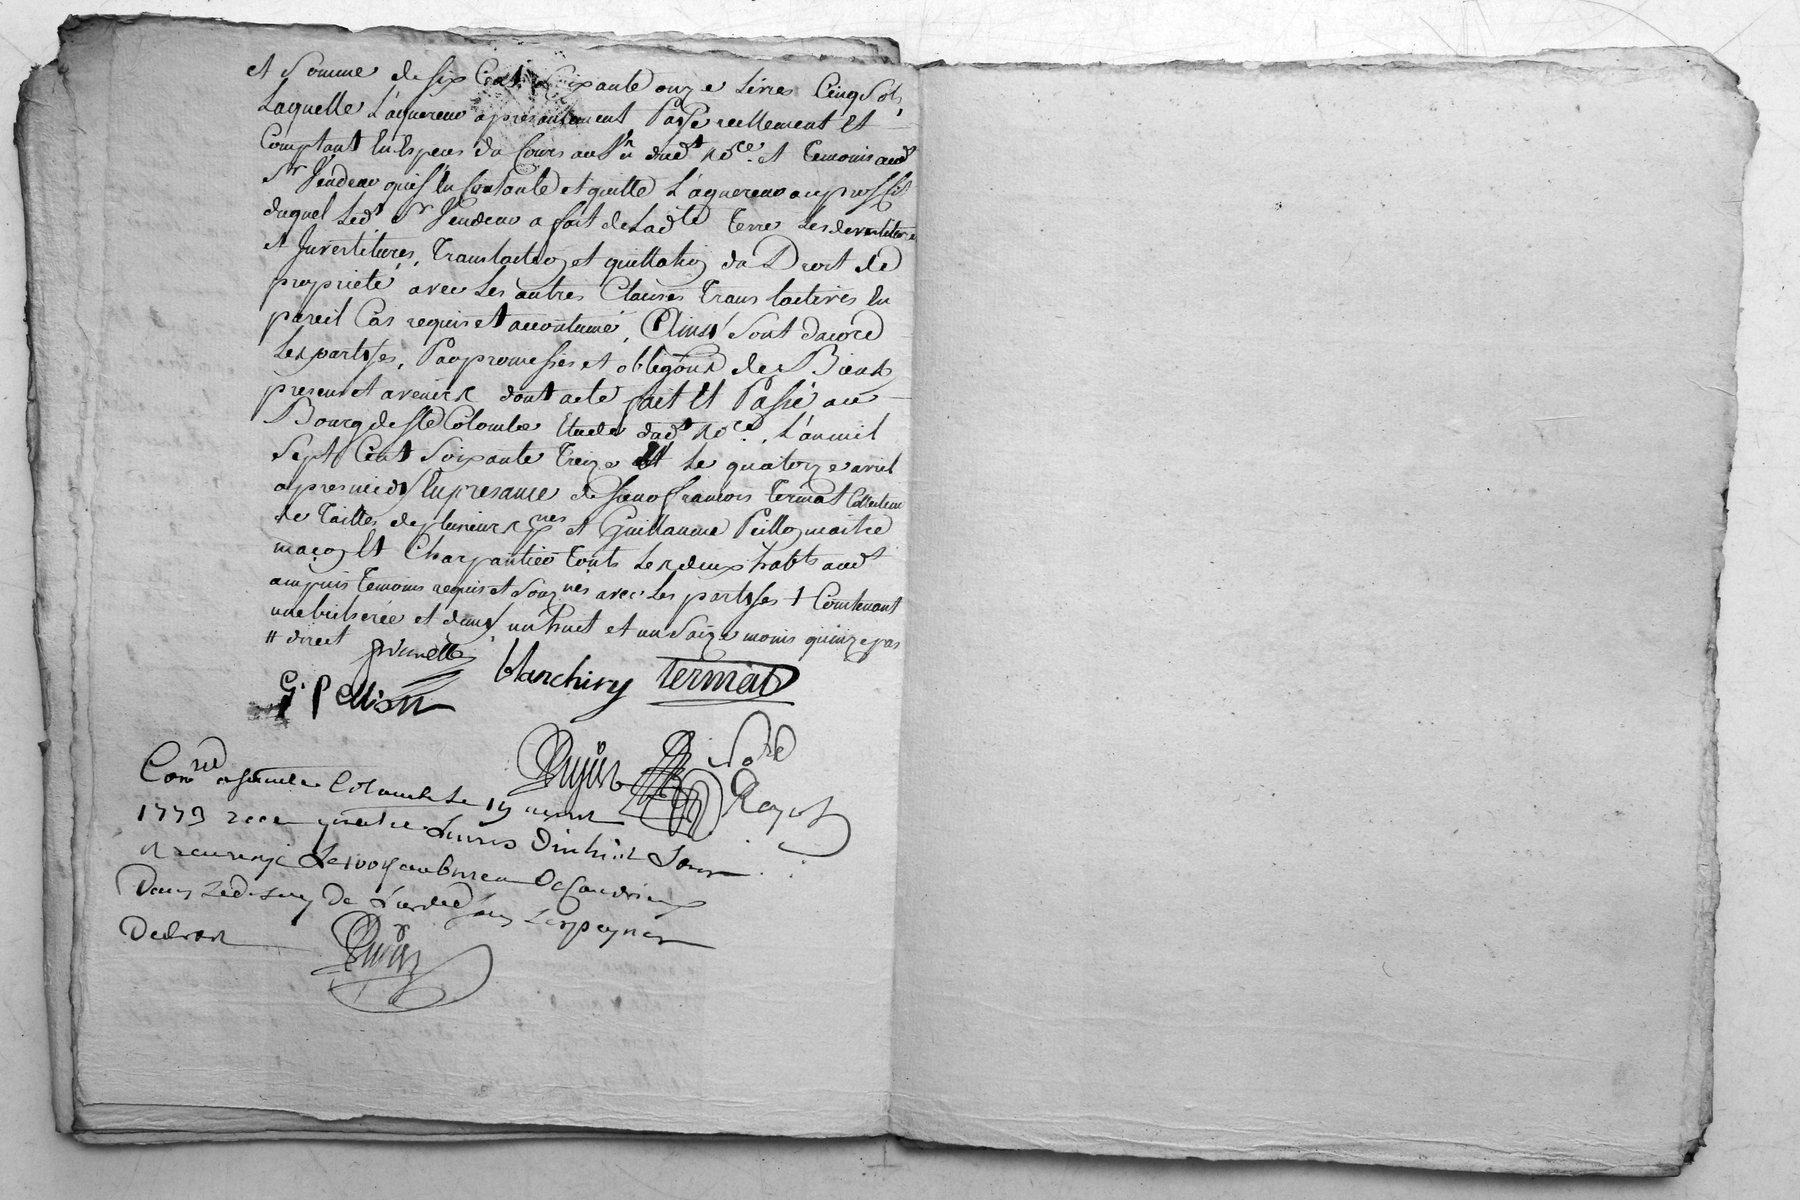 et Somme de six Cent soixante onze Livres Cinq Sols,
Laquelle L'aquereur apresentement Payé reellement et
Comptant en Especes du Cours au vû dud.t no.re et temoins aud
s.r Vendeur qui s'en Contante et quitte L'aquereur au proffit
duquel Led.t s.r Vendeur a fait de Lad.te terre Les devestitures
et Investitures, translation et quittation du Droit de
proprieté avec Les autres Clauses translatives En
pareil Cas requis et accoutumé, Ainsi sont dacord
Les parties, Par promesses et obligõns de Biens
presens et avenirs dont acte fait Et Passé au
Bourg de Ste Colombe Etude dud.t no.re, L'an mil
Sept Cent Soixante Treize Et Le quatorze avril
apres midy En presance de sieur francois Termat Collecteur
de tailles de plusieurs et Guillaume Pellion maitre
maçon Et Charpantier touts Les deux habt.s aud.t
ampuis temoins requis et avec Les parties † Contenant
une bicherée et demy et un Saize moins quinze pas
# direct prunelle
G. Pellion blanchiny termat
No.re
Royal
Con.lé a sainte Colombe Le avril
1773 recu quatre Livres dix huit sous
et renvoyé Le 100e au bureau De Condrieu
Dans Led. De Lordre
De droit